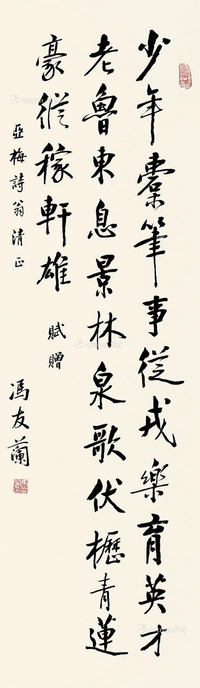 少年橐筆事從戎樂育英才
老魯東息景林泉歌伏櫪青蓮
豪縱稼軒雄
賦贈
亞梅詩翁清正
馮友蘭